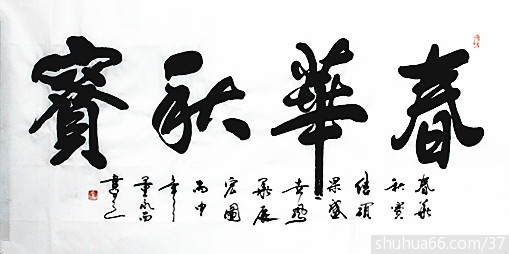 春華秋實
春華
秋實
碩
果盛
展
宏圖
丙申
年
書
shuhua66.com/37